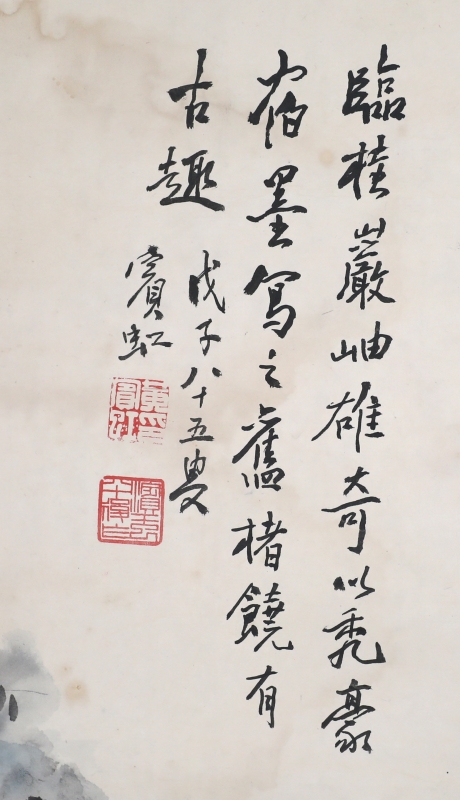 臨桂巖岫雄奇以秃豪
宿墨寫之舊楮饒有
古趣
戊子八十五叟
賓虹
黃賓虹